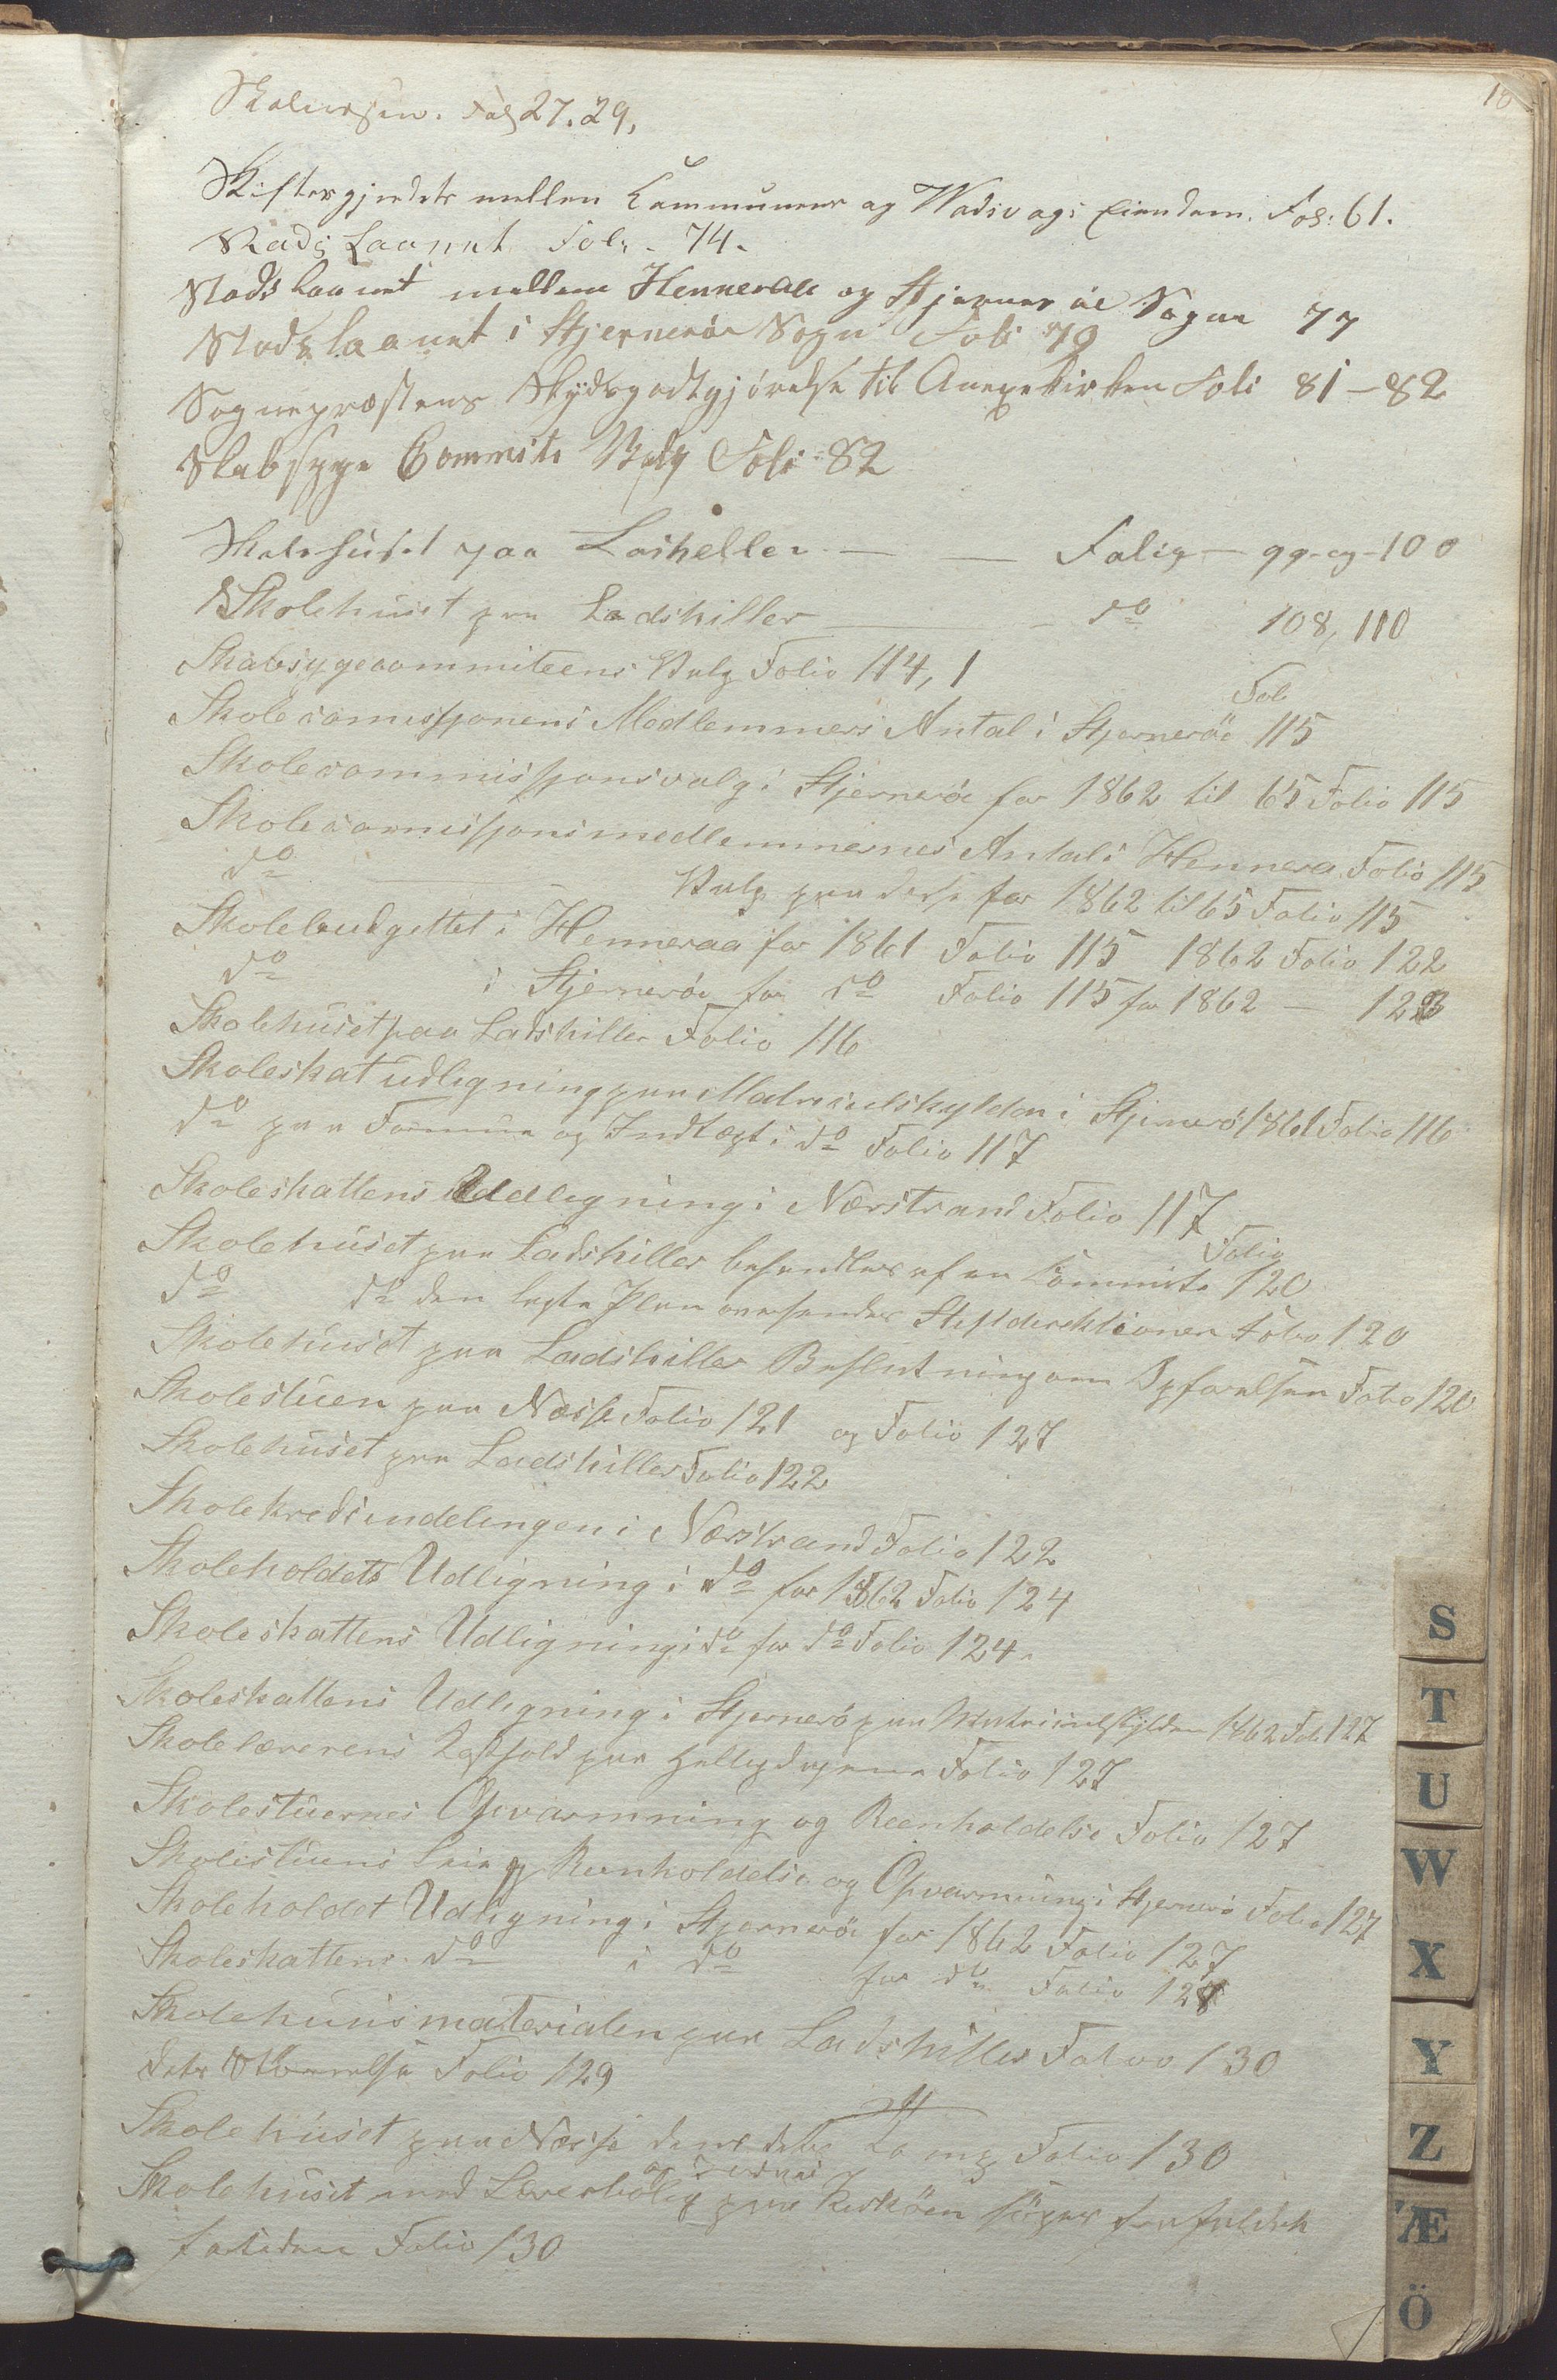 18
Skolevæsen. Fol 27. 29.
Skiftesgjerdets mellem Communens og Wadsvags Eiendom. Fol: 61.
Stads Laanet Fol. 74.
Stads Laanet mellem Henneraa og Hjernerøe Sogne 77
Stads laanet i Hjernerøe Sogn Foli 79
Sognepræstens Skydsgodtgjörelse til Annexkirken Foli 81-82
Skabsyge Commite Valg Foli 82
Skolehuset paa Losheller — — Folig — 99-og-100
Skolehuset paa Ladshiller — do 108, 110
Skabsygecommiteens Valg Folio 114, 1
Skolecomissjonens Medlemmers Antal i Hjerneröe Fol 115
Skolecommissjonsvalg i Hjerneröe for 1862 til 65 Folio 115
Skolecomissjonsmedlemmernes Antal i Hennera Folio 115
do — Valg paa disse for 1862 til 65 Folio 115
Skolebudgettet i Henneraa for 1861 Folio 115 1862 Folio 122
do i Hjerneröe for do Folio 115 for 1862 — 123
Skolehuset paa Ladshiller Folio 116
Skoleskatudligning paa Matriculskylden i Hjernerö 1861 Folio 116
do paa Formue og Indtægt i do Folio 117
Skoleskattens Uddligning i Nærstrand Folio 117
Skolehuset paa Ladshiller behandles af en Committe Folio 120
do do den lagte Plan oversendes Stiftdirektionen Folio 120
Skolehuset paa Ladshiller Beslutning om Opførelsen Folio 120
Skolestuen paa Næsse Folio 121 og Folio 127
Skolehuset paa Ladshiller Folio 122
Skolekredsindelingen i Nærstrand Folio 122
Skoleholdets Udligning i do for 1862 Folio 124
Skoleskattens Udligning i do for do Folio 124.
Skoleskattens Udligning i Hjernerö paa Matriculskylden 1862 Fol 127
Skolelærerens Ophold paa Helligdagene Folio 127
Skolestuernes Opvarmning og Reenholdelse Folio 127
Skolestuens Leie Reenholdelse og Opvarmning i Hjernerö Folio 127
Skoleholdet Udligning i Hjerneröe for 1862 Folio 127
Skoleskattens do i do for do Folio 128
Skolehuusmaterialen paa Ladshiller Folio 130
dets Folio 129
Skolehuset paa Næsse Folio 130
Skolehuset med Lærerbolig paa
Folio 130
S
T
U
W
X
Y
Z
Æ
Ö